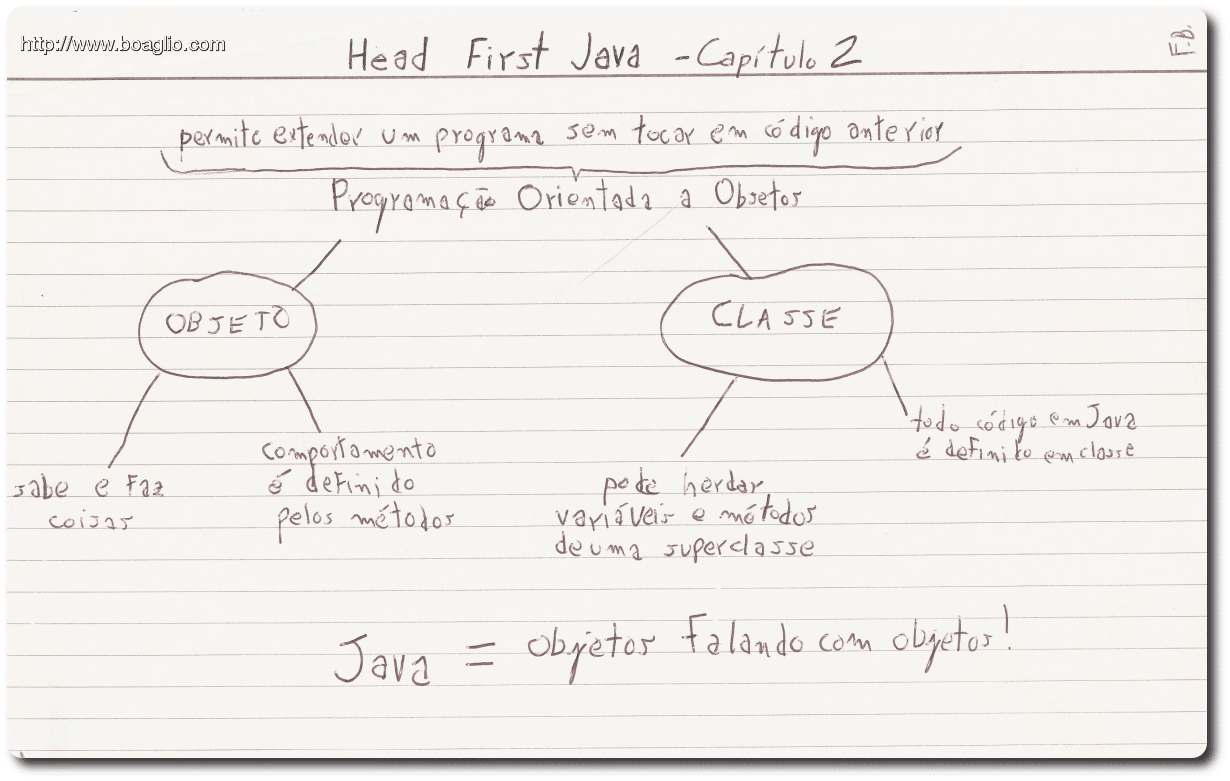 http://www.boaglio.com
F.B.
Head First Java - Capítulo 2
permite extender um programa sem tocar em código anterior
Programação Orientada a Objetos
OBJETO
CLASSE
sabe e faz
coisas
comportamento
é definido
pelos métodos
pode herdar
variáveis e métodos
de uma superclasse
todo código em Java
é definido em classe
Java = objetos falando com objetos!